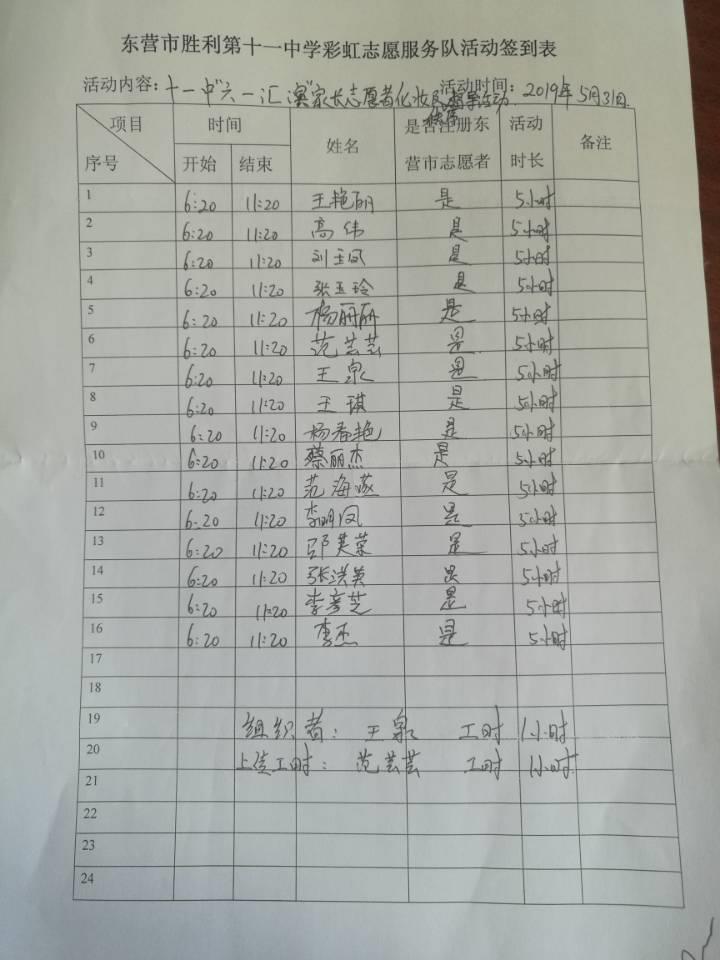 东营市胜利第十一中学彩虹志愿服务队活动签到表
活动内容：十一中"六一汇演"家长志愿者化妆及秩序督导活动 活动时间：2019年5月31日.
项目 序号 时间 姓名 是否注册东营市志愿者 活动时长 备注
开始 结束
1 6:20 11:20 王艳丽 是 5小时
2 6:20 11:20 高伟 是 5小时
3 6:20 11:20 刘玉凤 是 5小时
4 6:20 11:20 张玉玲 是 5小时
5 6:20 11:20 杨丽丽 是 5小时
6 6:20 11:20 范芸芸 是 5小时
7 6:20 11:20 王泉 是 5小时
8 6:20 11:20 王琪 是 5小时
9 6:20 11:20 杨春艳 是 5小时
10 6:20 11:20 蔡丽杰 是 5小时
11 6:20 11:20 范海燕 是 5小时
12 6:20 11:20 李明凤 是 5小时
13 6:20 11:20 芙荣 是 5小时
14 6:20 11:20 张洪英 是 5小时
15 6:20 11:20 李彦芝 是 5小时
16 6:20 11:20 李杰 是 5小时
17
18
19 组织者：王泉 工时 1小时
20 上传工时：范芸芸 工时 1小时
21
22
23
24